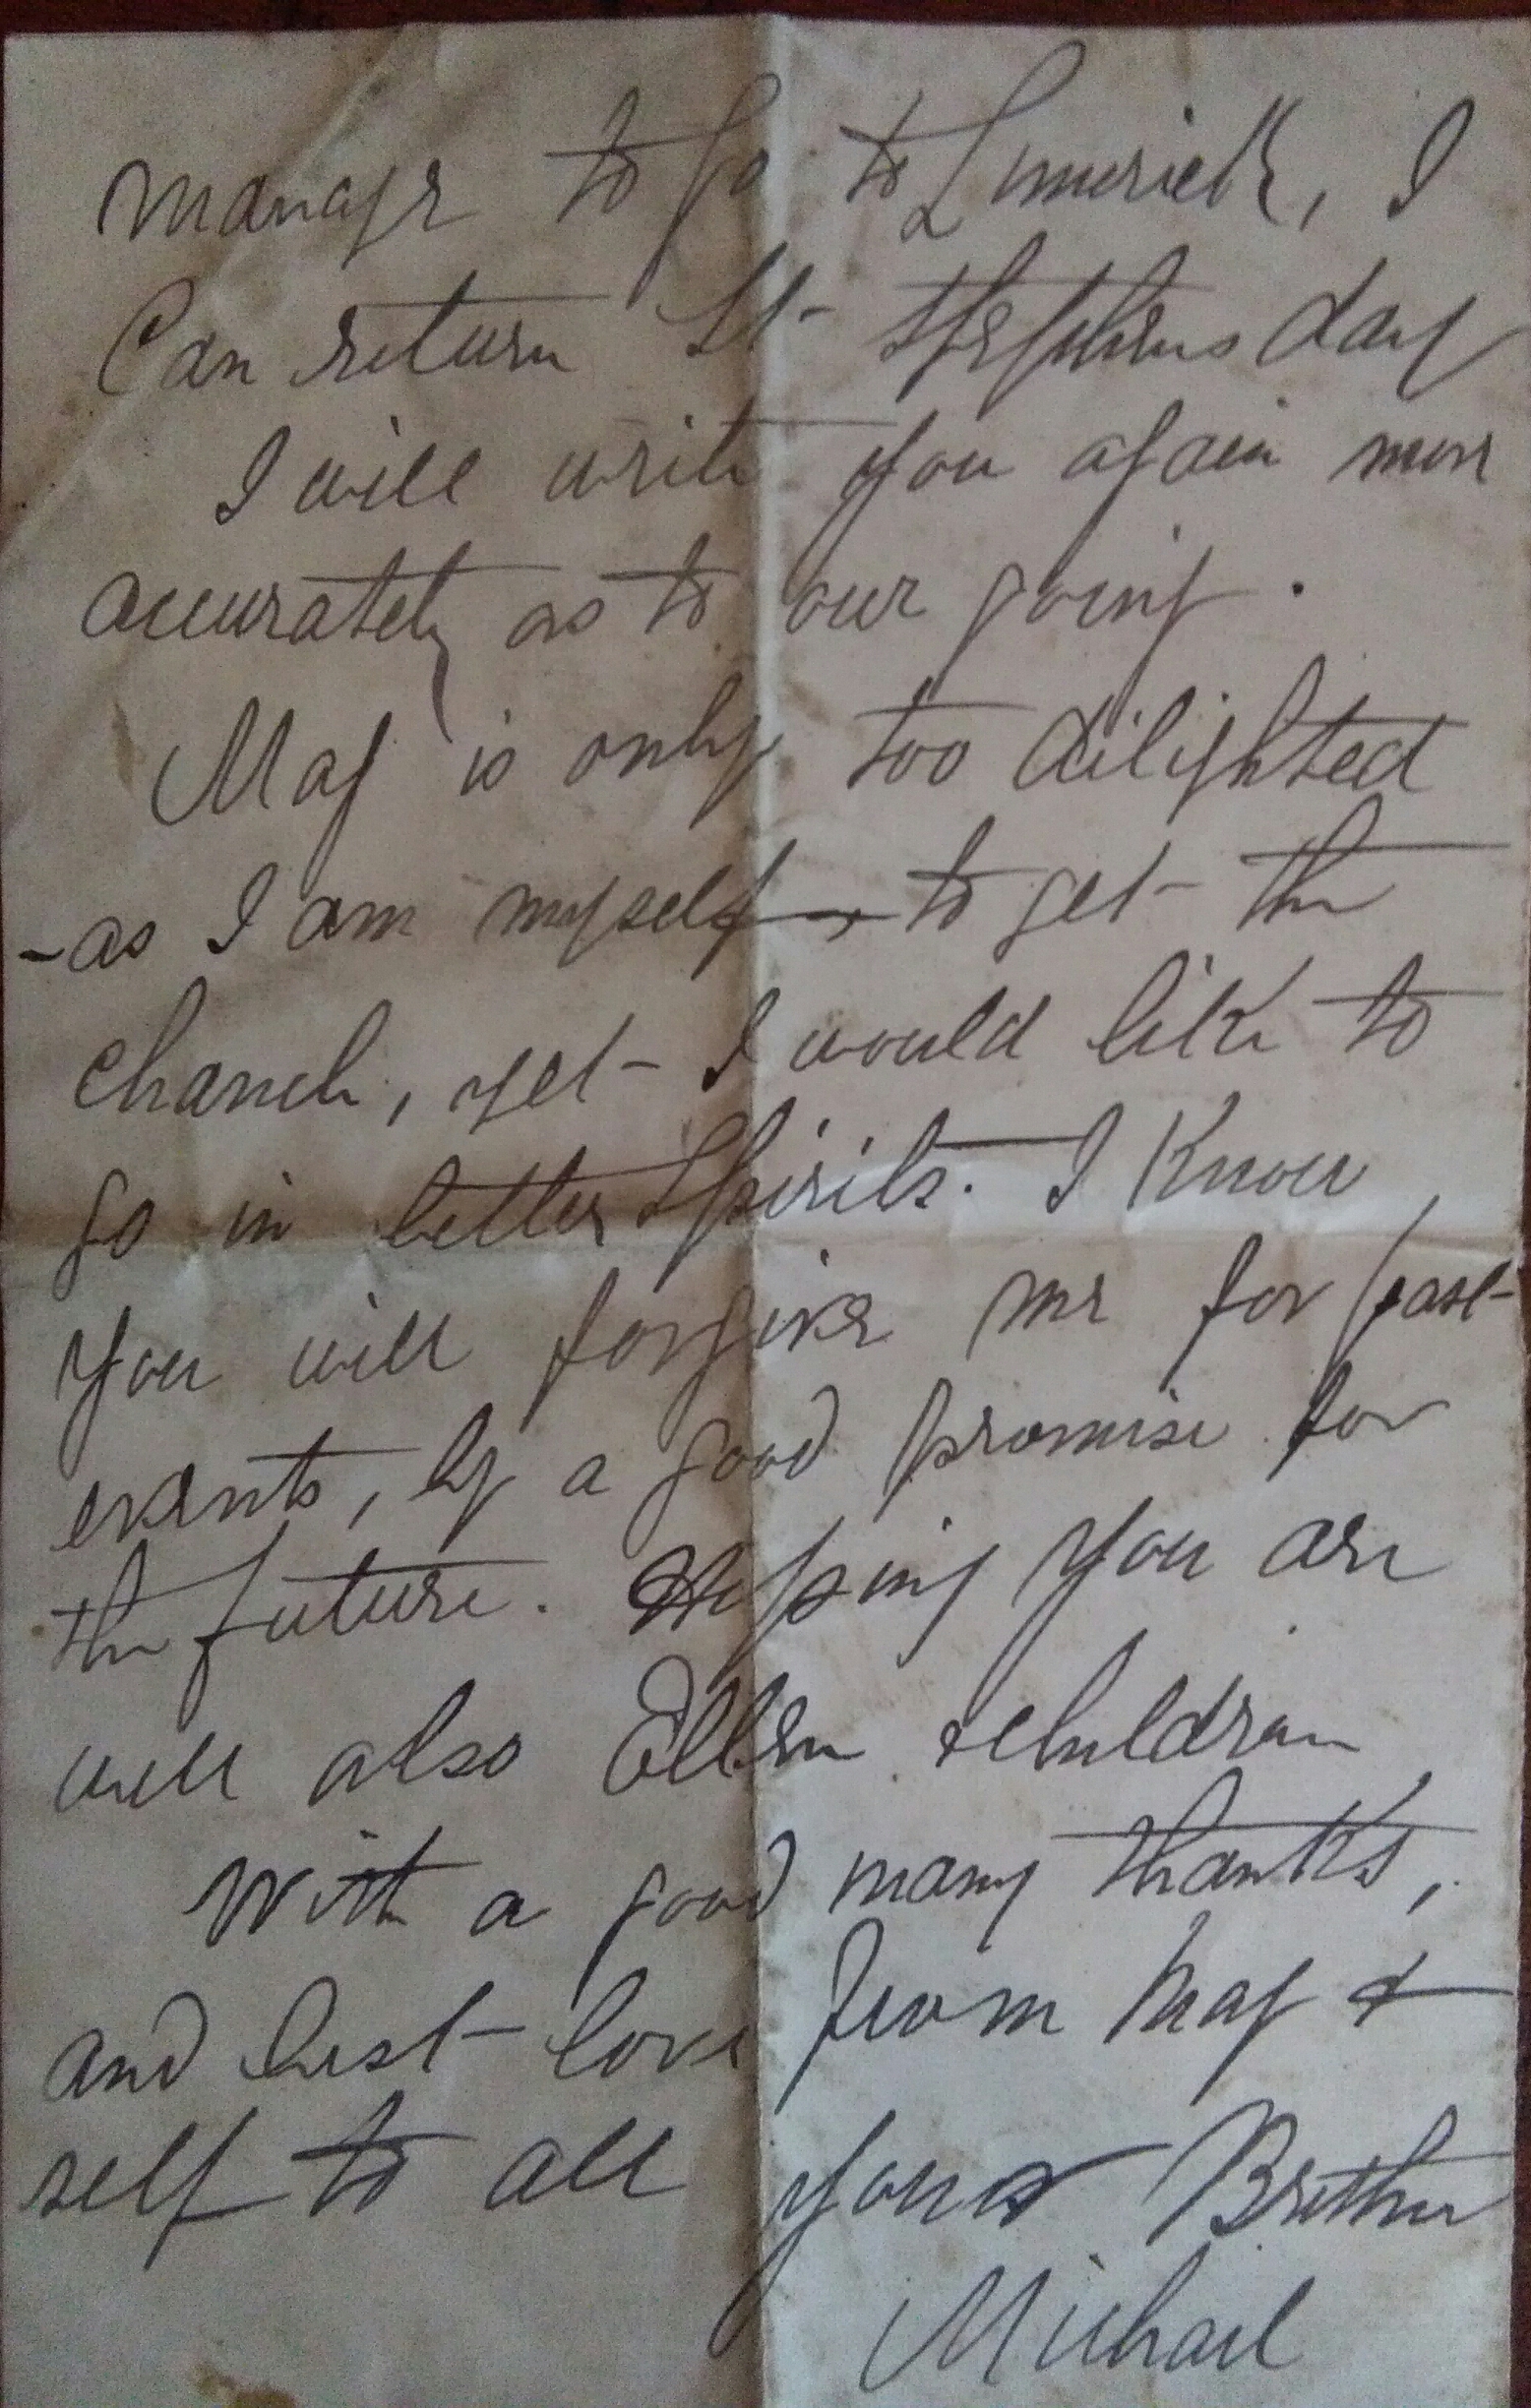 manage to go to Limerick, I
Can return St Stephens day
I will write you again more
accurately as to our going.
Mag is only too dilighted
-as I am myself - to get the
chance, yet I would like to
go in better spirits. I know
you will forgive me for past
events, by a good promise for
the future. Hoping you are
well also Ellen & children
With a good many thanks,
and best love from Mag &
self to all your Brother
Michael